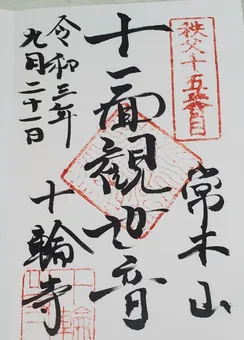 秩父十五番目
常木山
十一面観世音
十輪寺
令和三年
九月二十一日